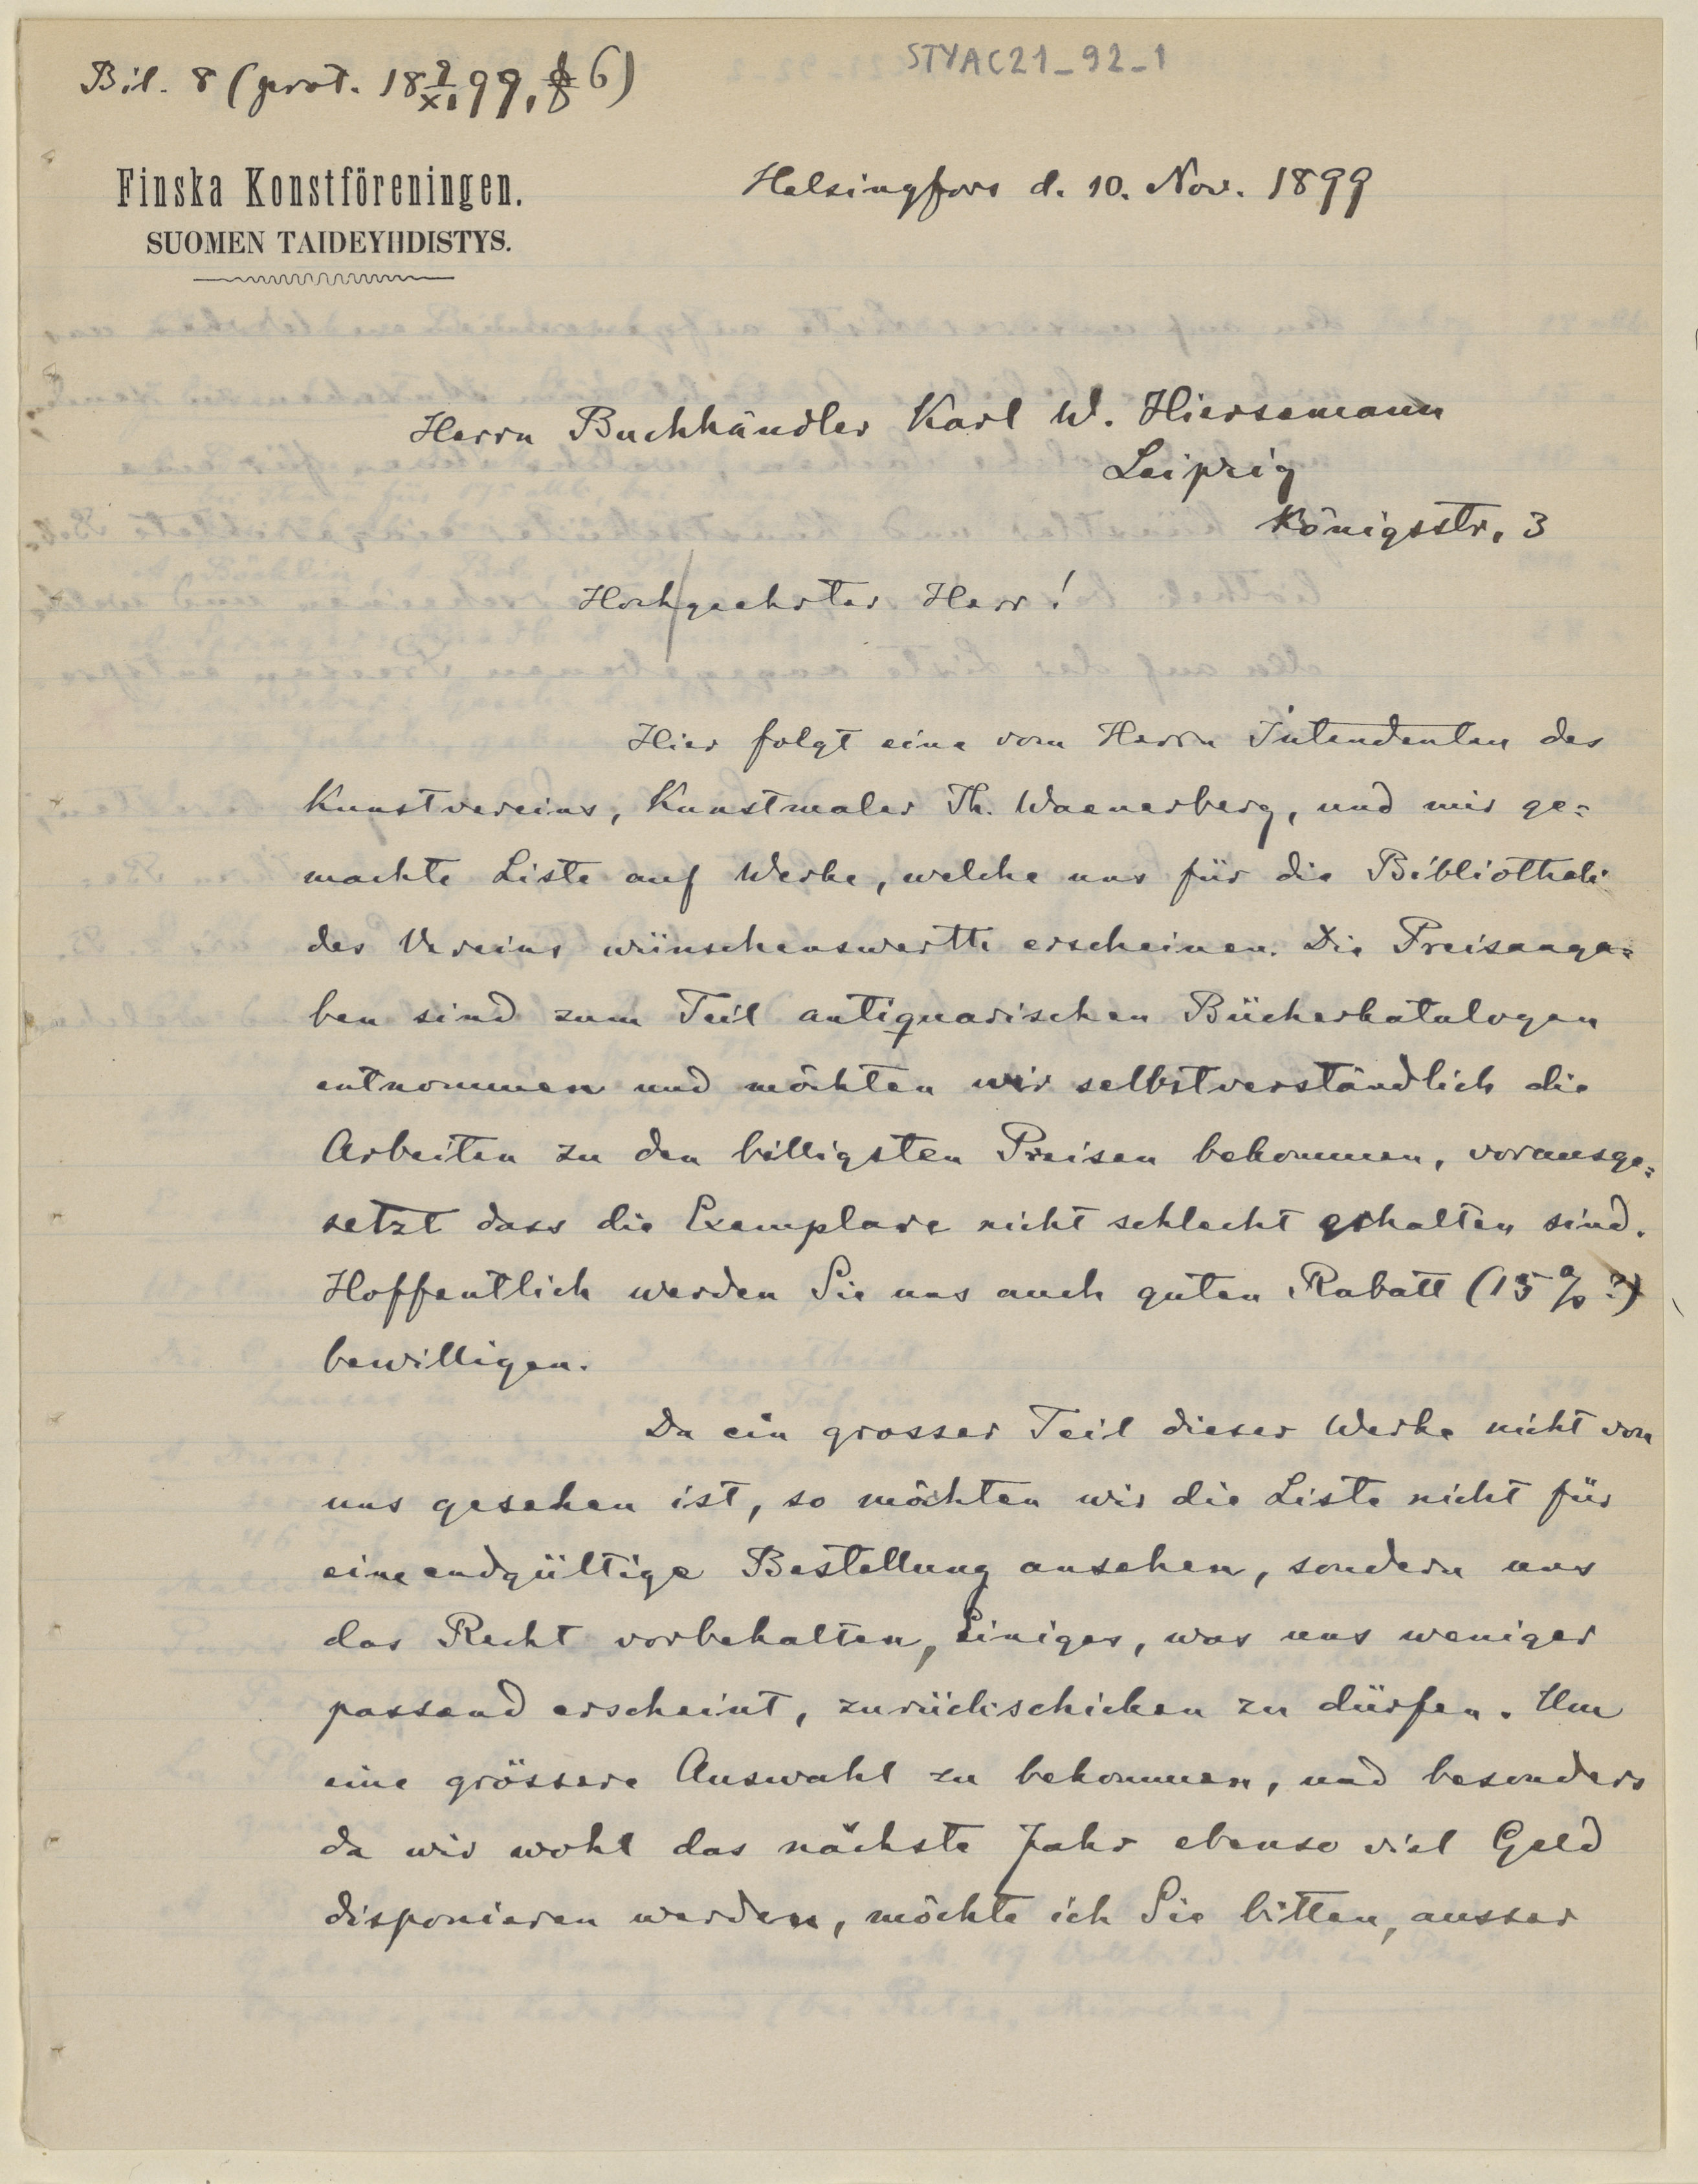 Bil. 8 (prot. 18 9/XI 99, § 6)
STYAC21_92_1
Finska Konstföreningen.
SUOMEN TAIDEYHDISTYS.
Helsingfors d. 10. Nov. 1899
Herrn Buchhändler Karl W. Hiersemann
Leipzig
Königsstr. 3
Hochgeehrter Herr!
Hier folgt eine vom Herrn Intendenten des
Kunstvereins, Kunstmaler Th. Waenerberg, und mir ge=
machte Liste auf Werke, welche uns für die Bibliothek
des Vereins wünschenswerth erscheinen. Die Preisanga=
ben sind zum Teil antiquarischen Bücherkatalogen
entnommen und möchten wir selbstverständlich die
Arbeiten zu den billigsten Preisen bekommen, vorausge=
setzt dass die Exemplare nicht schlecht erhalten sind.
Hoffentlich werden Sie uns auch guten Rabatt (15 % ?)
bewilligen.
Da ein grosser Teil dieser Werke nicht von
uns gesehen ist, so möchten wir die Liste nicht für
eine endgültige Bestellung ansehen, sondern uns
das Recht vorbehalten, Einiges, was uns weniger
passend erscheint, zurückschicken zu dürfen. Um
eine grössere Auswahl zu bekommen, und besonders
da wir wohl das nächste Jahr ebenso viel Geld
disponieren werden, möchte ich Sie bitten, ausser